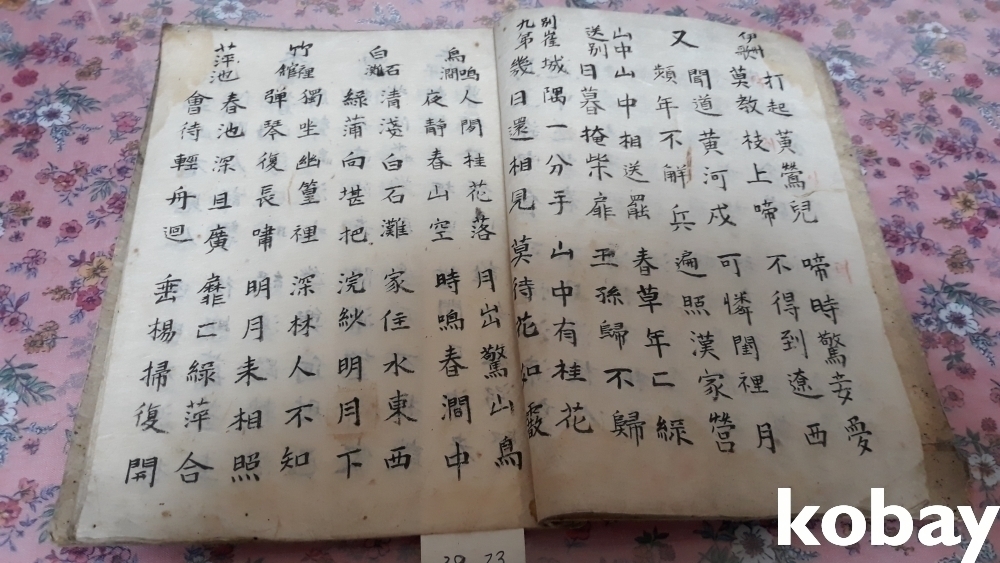 伊州歌
打起黃鶯兒 啼時驚妾愛
莫教枝上啼 不得到遼西
又
聞道黃河戍 可憐閨裡月
頻年不解兵 遍照漢家營
山中送別
山中相送罷 春草年〻綠
日暮掩柴扉 王孫歸不歸
別崔九第
城隅一分手 山中有桂花
幾日還相見 莫待花如霰
鳥鳴澗
人閒桂花落 月出驚山鳥
夜靜春山空 時鳴春澗中
白石灘
清淺白石灘 家住水東西
綠蒲向堪把 浣紗明月下
竹裡館
獨坐幽篁裡 深林人不知
彈琴復長嘯 明月来相照
萍池
春池深且廣 靡〻綠萍合
會待輕舟迴 垂楊掃復開
kobay